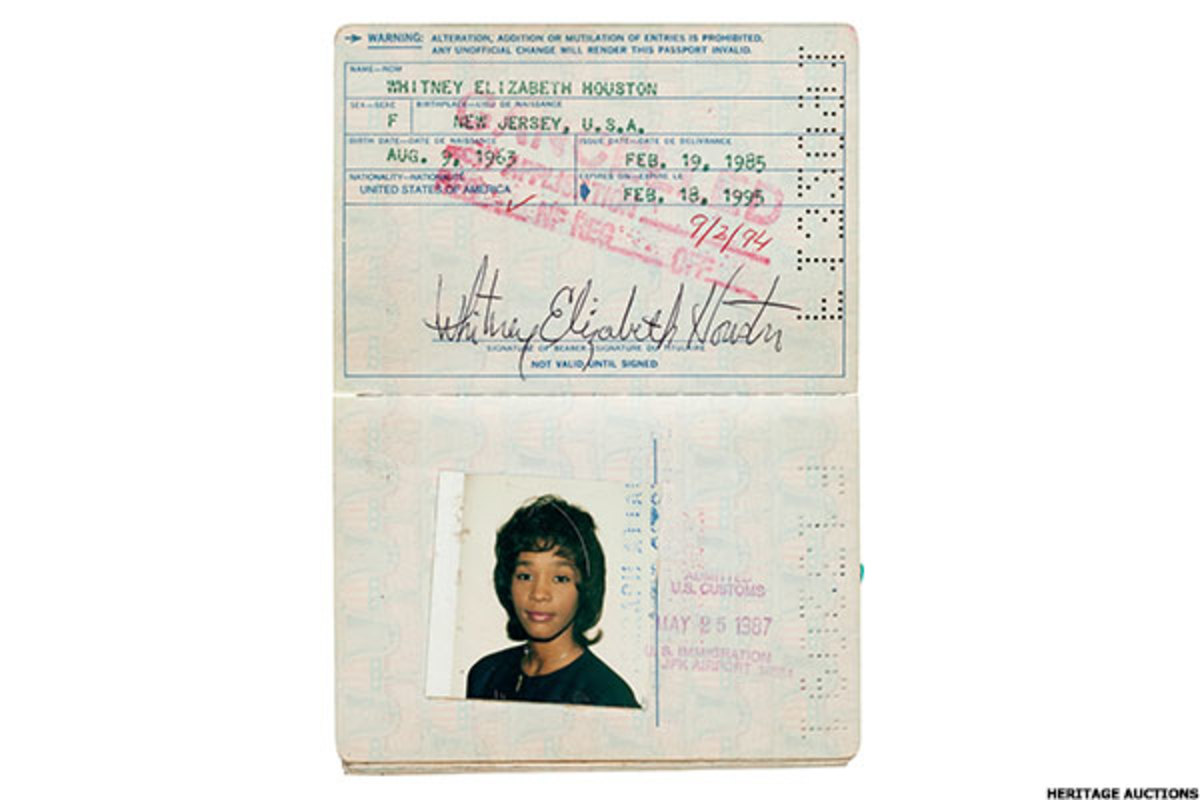 WARNING: ALTERATION, ADDITION OR MUTILATION OF ENTRIES IS PROHIBITED.
ANY UNOFFICIAL CHANGE WILL RENDER THIS PASSPORT INVALID.
NAME—NOM
WHITNEY ELIZABETH HOUSTON
SEX—SEXE BIRTHPLACE—LIEU DE NAISSANCE
F NEW JERSEY, U.S.A.
BIRTH DATE—DATE DE NAISSANCE ISSUE DATE—DATE DE DELIVRANCE
AUG. 9, 1963 FEB. 19, 1985
NATIONALITY—NATIONALITE EXPIRES ON—EXPIRE LE
UNITED STATES OF AMERICA FEB. 18, 1995
CANCELLED
APPLICATION
9/2/94
Whitney Elizabeth Houston
SIGNATURE OF BEARER—SIGNATURE DU TITULAIRE
NOT VALID UNTIL SIGNED
ADMITTED
U.S. CUSTOMS
MAY 25 1987
U.S. IMMIGRATION
JFK AIRPORT
HERITAGE AUCTIONS